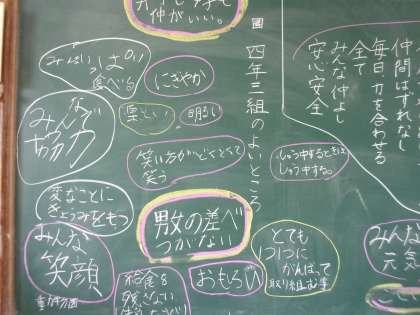 仲間はずれなし
毎日力を合わせる
全て
みんな仲よし
安心安全
四年三組のよいところ
仲がいい。
にぎやか
明るい
楽しい
みんなで
協力
笑い方が
笑う
しゅう中するときは
しゅう中する。
変なことに
きょうみをもつ
男女の差べ
つがない
みんな
笑顔
おもしろい
とても
1つ1つに
がんばって
取り組む事
給食を
残さない
みんな
元気